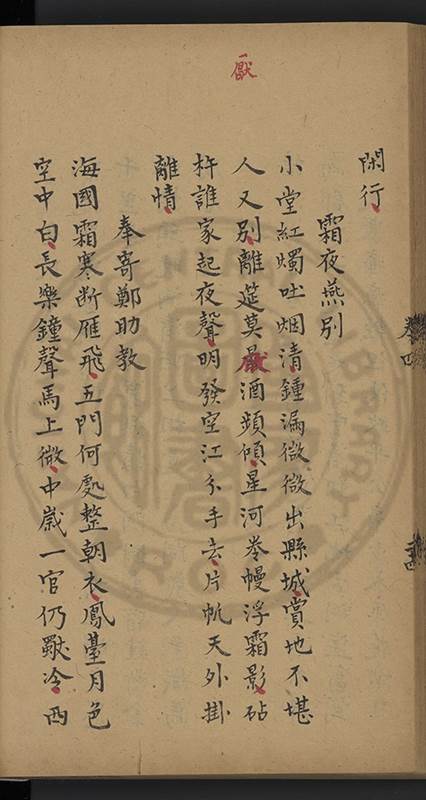 厭
閑行
霜夜燕別
小堂紅燭吐烟清鍾漏微微出縣城賞地不堪
人又別離筵莫厭酒頻傾星河岑幔浮霜影砧
杵誰家起夜聲明發空江分手去片帆天外掛
離情
奉寄鄭助教
海國霜寒断雁飛五門何處整朝衣鳳臺月色
空中白長樂鐘聲馬上微中歲一官仍歎冷西